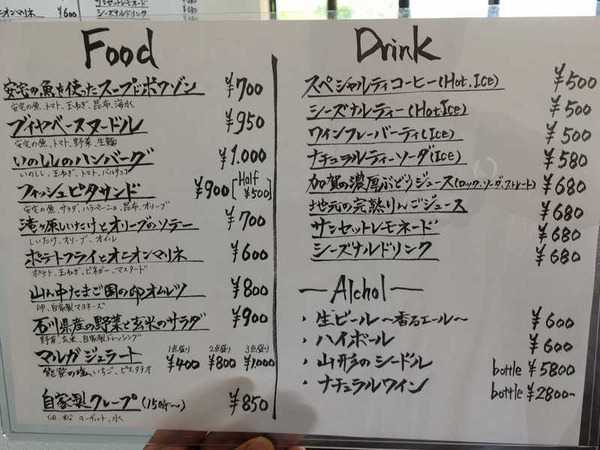 Food
安宅の魚を使ったスープドポワソン ¥700
安宅の魚、トマト、玉ねぎ、昆布、海水
ブイヤベースヌードル ¥950
安宅の魚、トマト、野菜、生麺
いのししのハンバーグ ¥1.000
いのしし、玉ねぎ、トマト、バルサミコ
フィッシュピタサンド ¥900 [Half ¥500]
安宅の魚、サラダ、ハラペーニョ、昆布、オリーブ
滝ヶ原しいたけとオリーブのソテー ¥700
しいたけ、オリーブ、オイル
ポテトフライとオニオンマリネ ¥600
ポテト、玉ねぎ、ビネガー、マスタード
山ん中たまご園の卵オムレツ ¥800
卵、自家製マヨネーズ
石川県産の野菜と玄米のサラダ ¥900
野菜、玄米、自家製ドレッシング
マルガジェラート 1点盛り ¥400 2点盛り ¥800 3点盛り ¥1,000
能登の塩、いちご、ピスタチオ
自家製クレープ(15時〜) ¥850
Drink
スペシャルティコーヒー(Hot.Ice) ¥500
シーズナルティー(Hot.Ice) ¥500
ワインフレーバーティ(Ice) ¥500
ナチュラルティーソーダ(Ice) ¥580
加賀の濃厚ぶどうジュース(ロック、ソーダ、ストレート) ¥680
地元の完熟りんごジュース ¥680
サンセットレモネード ¥680
シーズナルドリンク ¥680
— Alchol —
・生ビール〜香るエール〜 ¥600
・ハイボール ¥600
・山形のシードル bottle ¥5800
・ナチュラルワイン bottle ¥2800〜